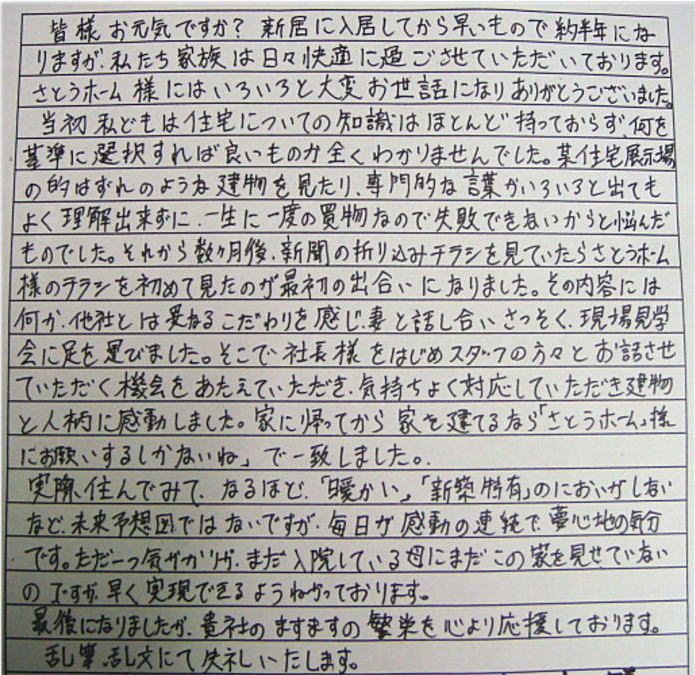 皆様 お元気ですか？ 新居に入居してから早いもので約半年にな
りますが、私たち家族は日々快適に過ごさせていただいております。
さとうホーム様にはいろいろと大変お世話になりありがとうございました。
当初 私どもは住宅についての知識はほとんど持っておらず、何を
基準に選択すれば良いものか全くわかりませんでした。某住宅展示場
の的はずれのような建物を見たり、専門的な言葉がいろいろと出ても
よく理解出来ずに、一生に一度の買物なので失敗できないからと悩んだ
ものでした。それから数ヶ月後、新聞の折り込みチラシを見ていたらさとうホーム
様のチラシを初めて見たのが最初の出合いになりました。その内容には
何か、他社とは異なるこだわりを感じ、妻と話し合いさっそく、現場見学
会に足を運びました。そこで、社長様をはじめスタッフの方々とお話させ
ていただく機会をあたえていただき、気持ちよく対応していただき建物
と人柄に感動しました。家に帰ってから 家を建てるなら「さとうホーム」様
にお願いするしかないね」で一致しました。
実際、住んでみて、なるほど、「暖かい」、「新築特有」のにおいがしない
など、未来予想図ではないですが、毎日が感動の連続で、夢心地の気分
です。ただ一つ気がかりが、まだ入院している母にまだこの家を見せていない
のですが、早く実現できるようねがっております。
最後になりましたが、貴社のますますの繁栄を心より応援しております。
乱筆、乱文にて失礼いたします。